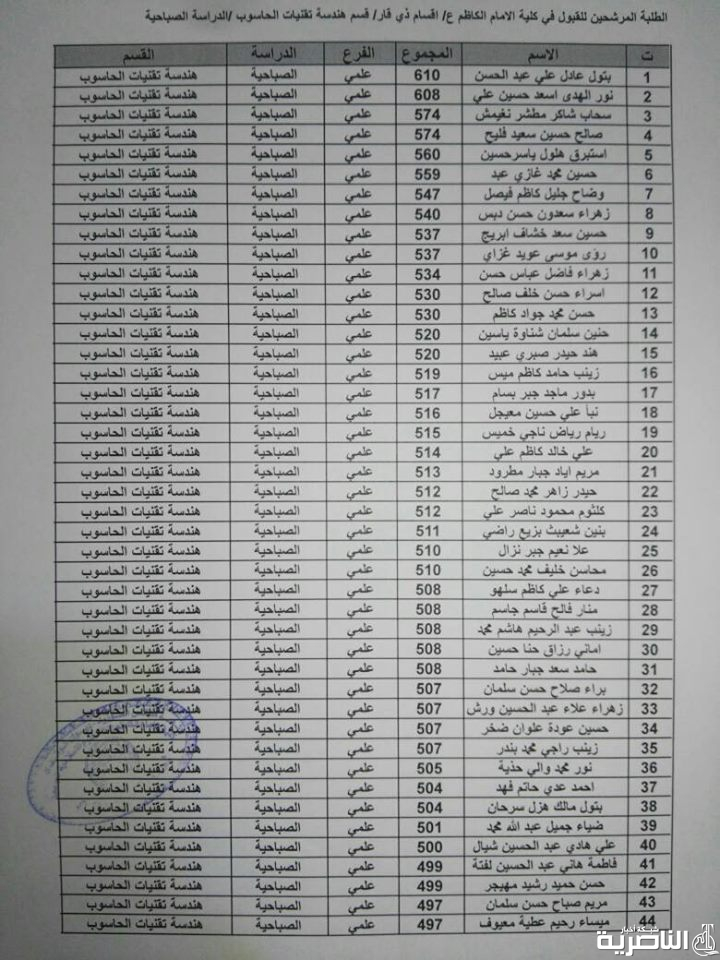 الطلبة المرشحين للقبول في كلية الامام الكاظم ع/ اقسام ذي قار/ قسم هندسة تقنيات الحاسوب /الدراسة الصباحية
ت الاسم المجموع الفرع الدراسة القسم
1 بتول عادل علي عبد الحسن 610 علمي الصباحية هندسة تقنيات الحاسوب
2 نور الهدى اسعد حسين علي 608 علمي الصباحية هندسة تقنيات الحاسوب
3 سحاب شاكر مطشر نغيمش 574 علمي الصباحية هندسة تقنيات الحاسوب
4 صالح حسين سعيد فليح 574 علمي الصباحية هندسة تقنيات الحاسوب
5 استبرق هلول ياسرحسين 560 علمي الصباحية هندسة تقنيات الحاسوب
6 حسين محمد غازي عبد 559 علمي الصباحية هندسة تقنيات الحاسوب
7 وضاح جليل كاظم فيصل 547 علمي الصباحية هندسة تقنيات الحاسوب
8 زهراء سعدون حسن دبس 540 علمي الصباحية هندسة تقنيات الحاسوب
9 حسين سعد خشاف ابريج 537 علمي الصباحية هندسة تقنيات الحاسوب
10 رؤى موسى عويد غزاي 537 علمي الصباحية هندسة تقنيات الحاسوب
11 زهراء فاضل عباس حسن 534 علمي الصباحية هندسة تقنيات الحاسوب
12 اسراء حسن خلف صالح 530 علمي الصباحية هندسة تقنيات الحاسوب
13 حسن محمد جواد كاظم 530 علمي الصباحية هندسة تقنيات الحاسوب
14 حنين سلمان شناوة ياسين 520 علمي الصباحية هندسة تقنيات الحاسوب
15 هند حيدر صبري عبيد 520 علمي الصباحية هندسة تقنيات الحاسوب
16 زينب حامد كاظم ميس 519 علمي الصباحية هندسة تقنيات الحاسوب
17 بدور ماجد جبر بسام 517 علمي الصباحية هندسة تقنيات الحاسوب
18 نبأ علي حسين معيجل 516 علمي الصباحية هندسة تقنيات الحاسوب
19 ريام رياض ناجي خميس 515 علمي الصباحية هندسة تقنيات الحاسوب
20 علي خالد كاظم علي 514 علمي الصباحية هندسة تقنيات الحاسوب
21 مريم اياد جبار مطرود 513 علمي الصباحية هندسة تقنيات الحاسوب
22 حيدر زاهر محمد صالح 512 علمي الصباحية هندسة تقنيات الحاسوب
23 كلثوم محمود ناصر علي 512 علمي الصباحية هندسة تقنيات الحاسوب
24 بنين شعيبث بزيع راضي 511 علمي الصباحية هندسة تقنيات الحاسوب
25 علا نعيم جبر نزال 510 علمي الصباحية هندسة تقنيات الحاسوب
26 محاسن خليف محمد حسين 510 علمي الصباحية هندسة تقنيات الحاسوب
27 دعاء علي كاظم سلهو 508 علمي الصباحية هندسة تقنيات الحاسوب
28 منار فالح قاسم جاسم 508 علمي الصباحية هندسة تقنيات الحاسوب
29 زينب عبد الرحيم هاشم محمد 508 علمي الصباحية هندسة تقنيات الحاسوب
30 اماني رزاق حنا حسين 508 علمي الصباحية هندسة تقنيات الحاسوب
31 حامد سعد جبار حامد 508 علمي الصباحية هندسة تقنيات الحاسوب
32 براء صلاح حسن سلمان 507 علمي الصباحية هندسة تقنيات الحاسوب
33 زهراء علاء عبد الحسين ورش 507 علمي الصباحية هندسة تقنيات الحاسوب
34 حسين عودة علوان ضخر 507 علمي الصباحية هندسة تقنيات الحاسوب
35 زينب راجي محمد بندر 507 علمي الصباحية هندسة تقنيات الحاسوب
36 نور محمد والي حذية 505 علمي الصباحية هندسة تقنيات الحاسوب
37 احمد عدي حاتم فهد 504 علمي الصباحية هندسة تقنيات الحاسوب
38 بتول مالك هزل سرحان 504 علمي الصباحية هندسة تقنيات الحاسوب
39 ضياء جميل عبد الله محمد 501 علمي الصباحية هندسة تقنيات الحاسوب
40 علي هادي عبد الحسين شيال 500 علمي الصباحية هندسة تقنيات الحاسوب
41 فاطمة هاني عبد الحسين لفتة 499 علمي الصباحية هندسة تقنيات الحاسوب
42 حسن حميد رشيد مهيجر 499 علمي الصباحية هندسة تقنيات الحاسوب
43 مريم صباح حسن سلمان 497 علمي الصباحية هندسة تقنيات الحاسوب
44 ميساء رحيم عطية معيوف 497 علمي الصباحية هندسة تقنيات الحاسوب
شبكة اخبار
الناصرية